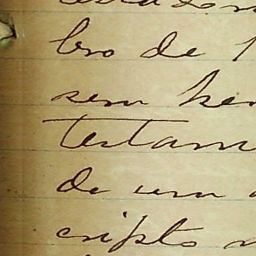 bro de 1
sem her
testam
de um
cripto